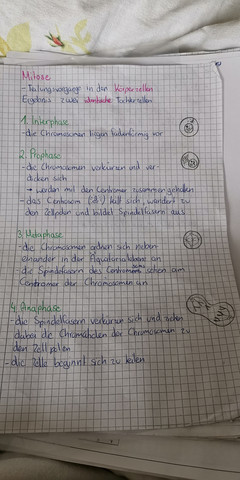 Mitose
- Teilungsvorgänge in den Körperzellen
Ergebnis: zwei identische Tochterzellen
1. Interphase
- die Chromosomen liegen fadenförmig vor
2. Prophase
- die Chromosomen verkürzen und ver-
dicken sich
→ werden mit den Centromer zusammengehalten
- das Centrosom teilt sich, wandert zu
den Zellpolen und bildet Spindelfasern aus
3. Metaphase
- die Chromosomen ordnen sich neben
einander in der Äquatorialebene an
- die Spindelfasern des Centrosoms
Centromer der Chromosomen an
4. Anaphase
- die Spindelfasern verkürzen sich und ziehen
dabei die Chromatiden der Chromosomen zu
den Zellpolen
- die Zelle beginnt sich zu teilen